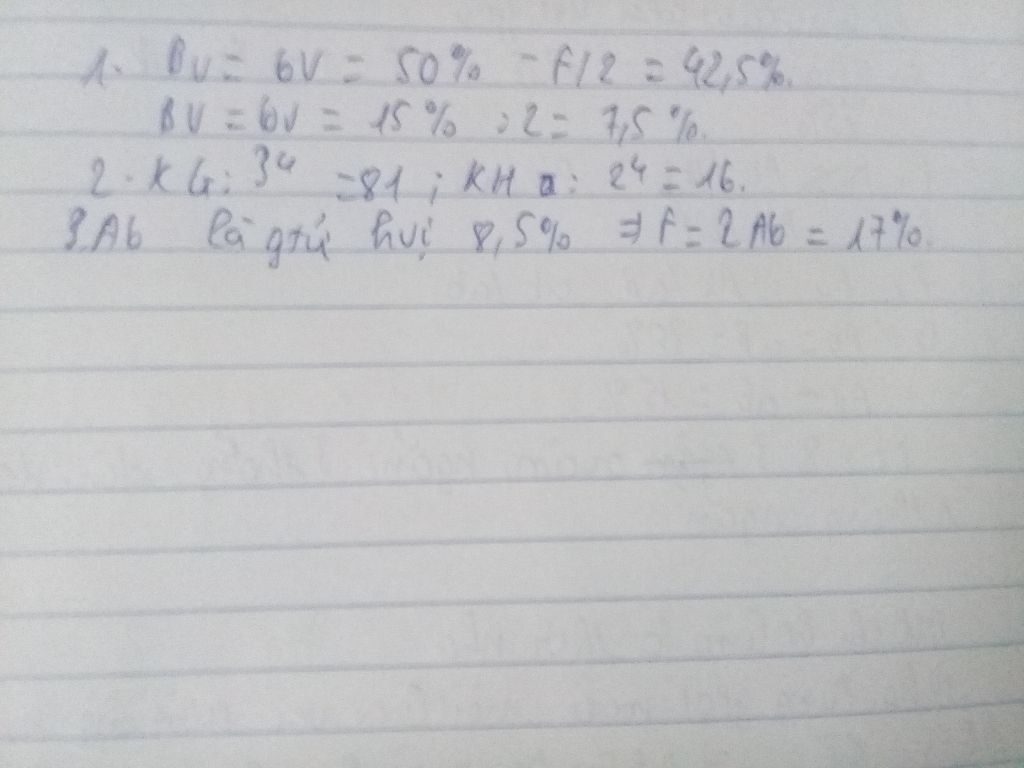 1. BV = bV = 50% - f/2 = 42,5%.
BV = bV = 15% : 2 = 7,5%.
2. KG: 3⁴ = 81 ; KH: 2⁴ = 16.
3. Ab là gtử hvị 8,5% ⇒ f = 2 Ab = 17%.